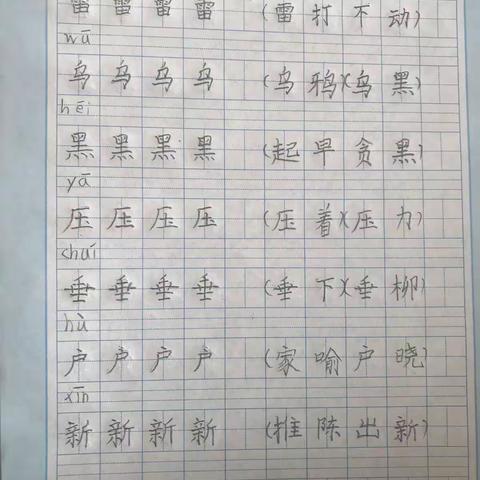 雷 雷 雷 雷 (雷打不动)
wū
乌 乌 乌 乌 (乌鸦)(乌黑)
hēi
黑 黑 黑 黑 (起早贪黑)
yā
压 压 压 压 (压着)(压力)
chuí
垂 垂 垂 垂 (垂下)(垂柳)
hù
户 户 户 户 (家喻户晓)
xīn
新 新 新 新 (推陈出新)